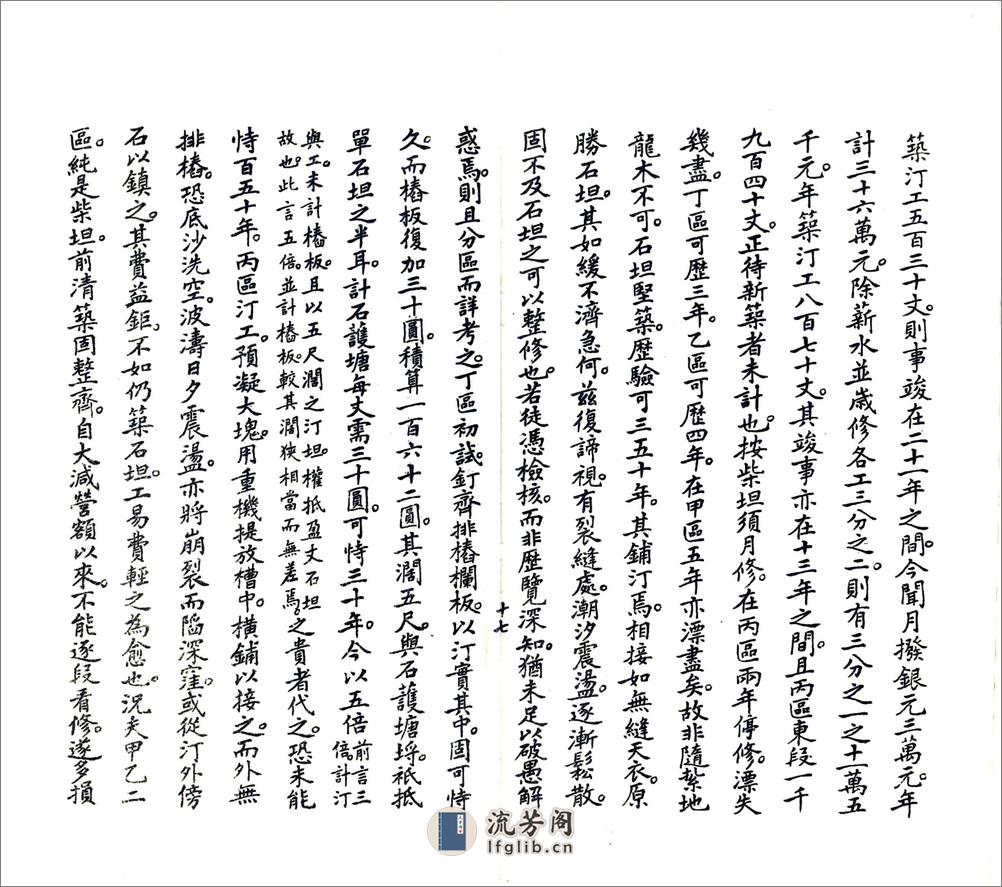 築汀工五百三十丈。則事竣在二十一年之間。今聞月撥銀元三萬元。年
計三十六萬元。除薪水並歲修各工三分之二。則有三分之一之十一萬五
千元。年築汀工八百七十丈。其竣事亦在十三年之間。且丙區東段一千
九百四十丈。正待新築者未計也。按柴坦須月修。在丙區兩年停修。漂失
幾盡。丁區可歷三年。乙區可歷四年。在甲區五年亦漂盡矣。故非隨紮地
龍木不可。石坦堅築。歷驗可三五十年。其鋪汀焉。相接如無縫天衣。原
勝石坦。其如緩不濟急何。茲復諦視。有裂縫處。潮汐震盪。逐漸鬆散。
固不及石坦之可以整修也。若徒憑檢核。而非歷覽深知。猶未足以破愚解
十七
惑焉。則且分區而詳考之。丁區初試。釘齊排樁欄板。以汀實其中。固可恃
久。而樁板復加三十圓。積算一百六十二圓。其濶五尺。與石護塘埒。祇抵
單石坦之半耳。計石護塘每丈需三十圓。可恃三十年。今以五倍前言三倍。計汀
與工。未計樁板。且以五尺濶之汀坦。權抵盈丈石坦
故也。此言五倍。並計樁板。較其濶狹相當而無差焉。之貴者代之。恐未能
恃百五十年。丙區汀工。預凝大塊。用重機提放槽中。橫鋪以接之。而外無
排樁。恐底沙洗空。波濤日夕震盪。亦將崩裂而陷深窪。或從汀外傍
石以鎮之。其費益鉅。不如仍築石坦。工易費輕之為愈也。況夫甲乙二
區。純是柴坦。前清築固整齊。自大減營額以來。不能逐段看修。遂多損
流芳阁
lfglib.cn